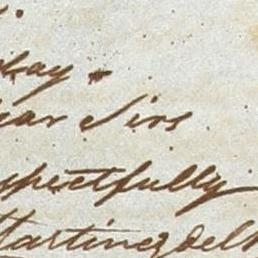 day.
ear Sirs
spectfully
Martinez del